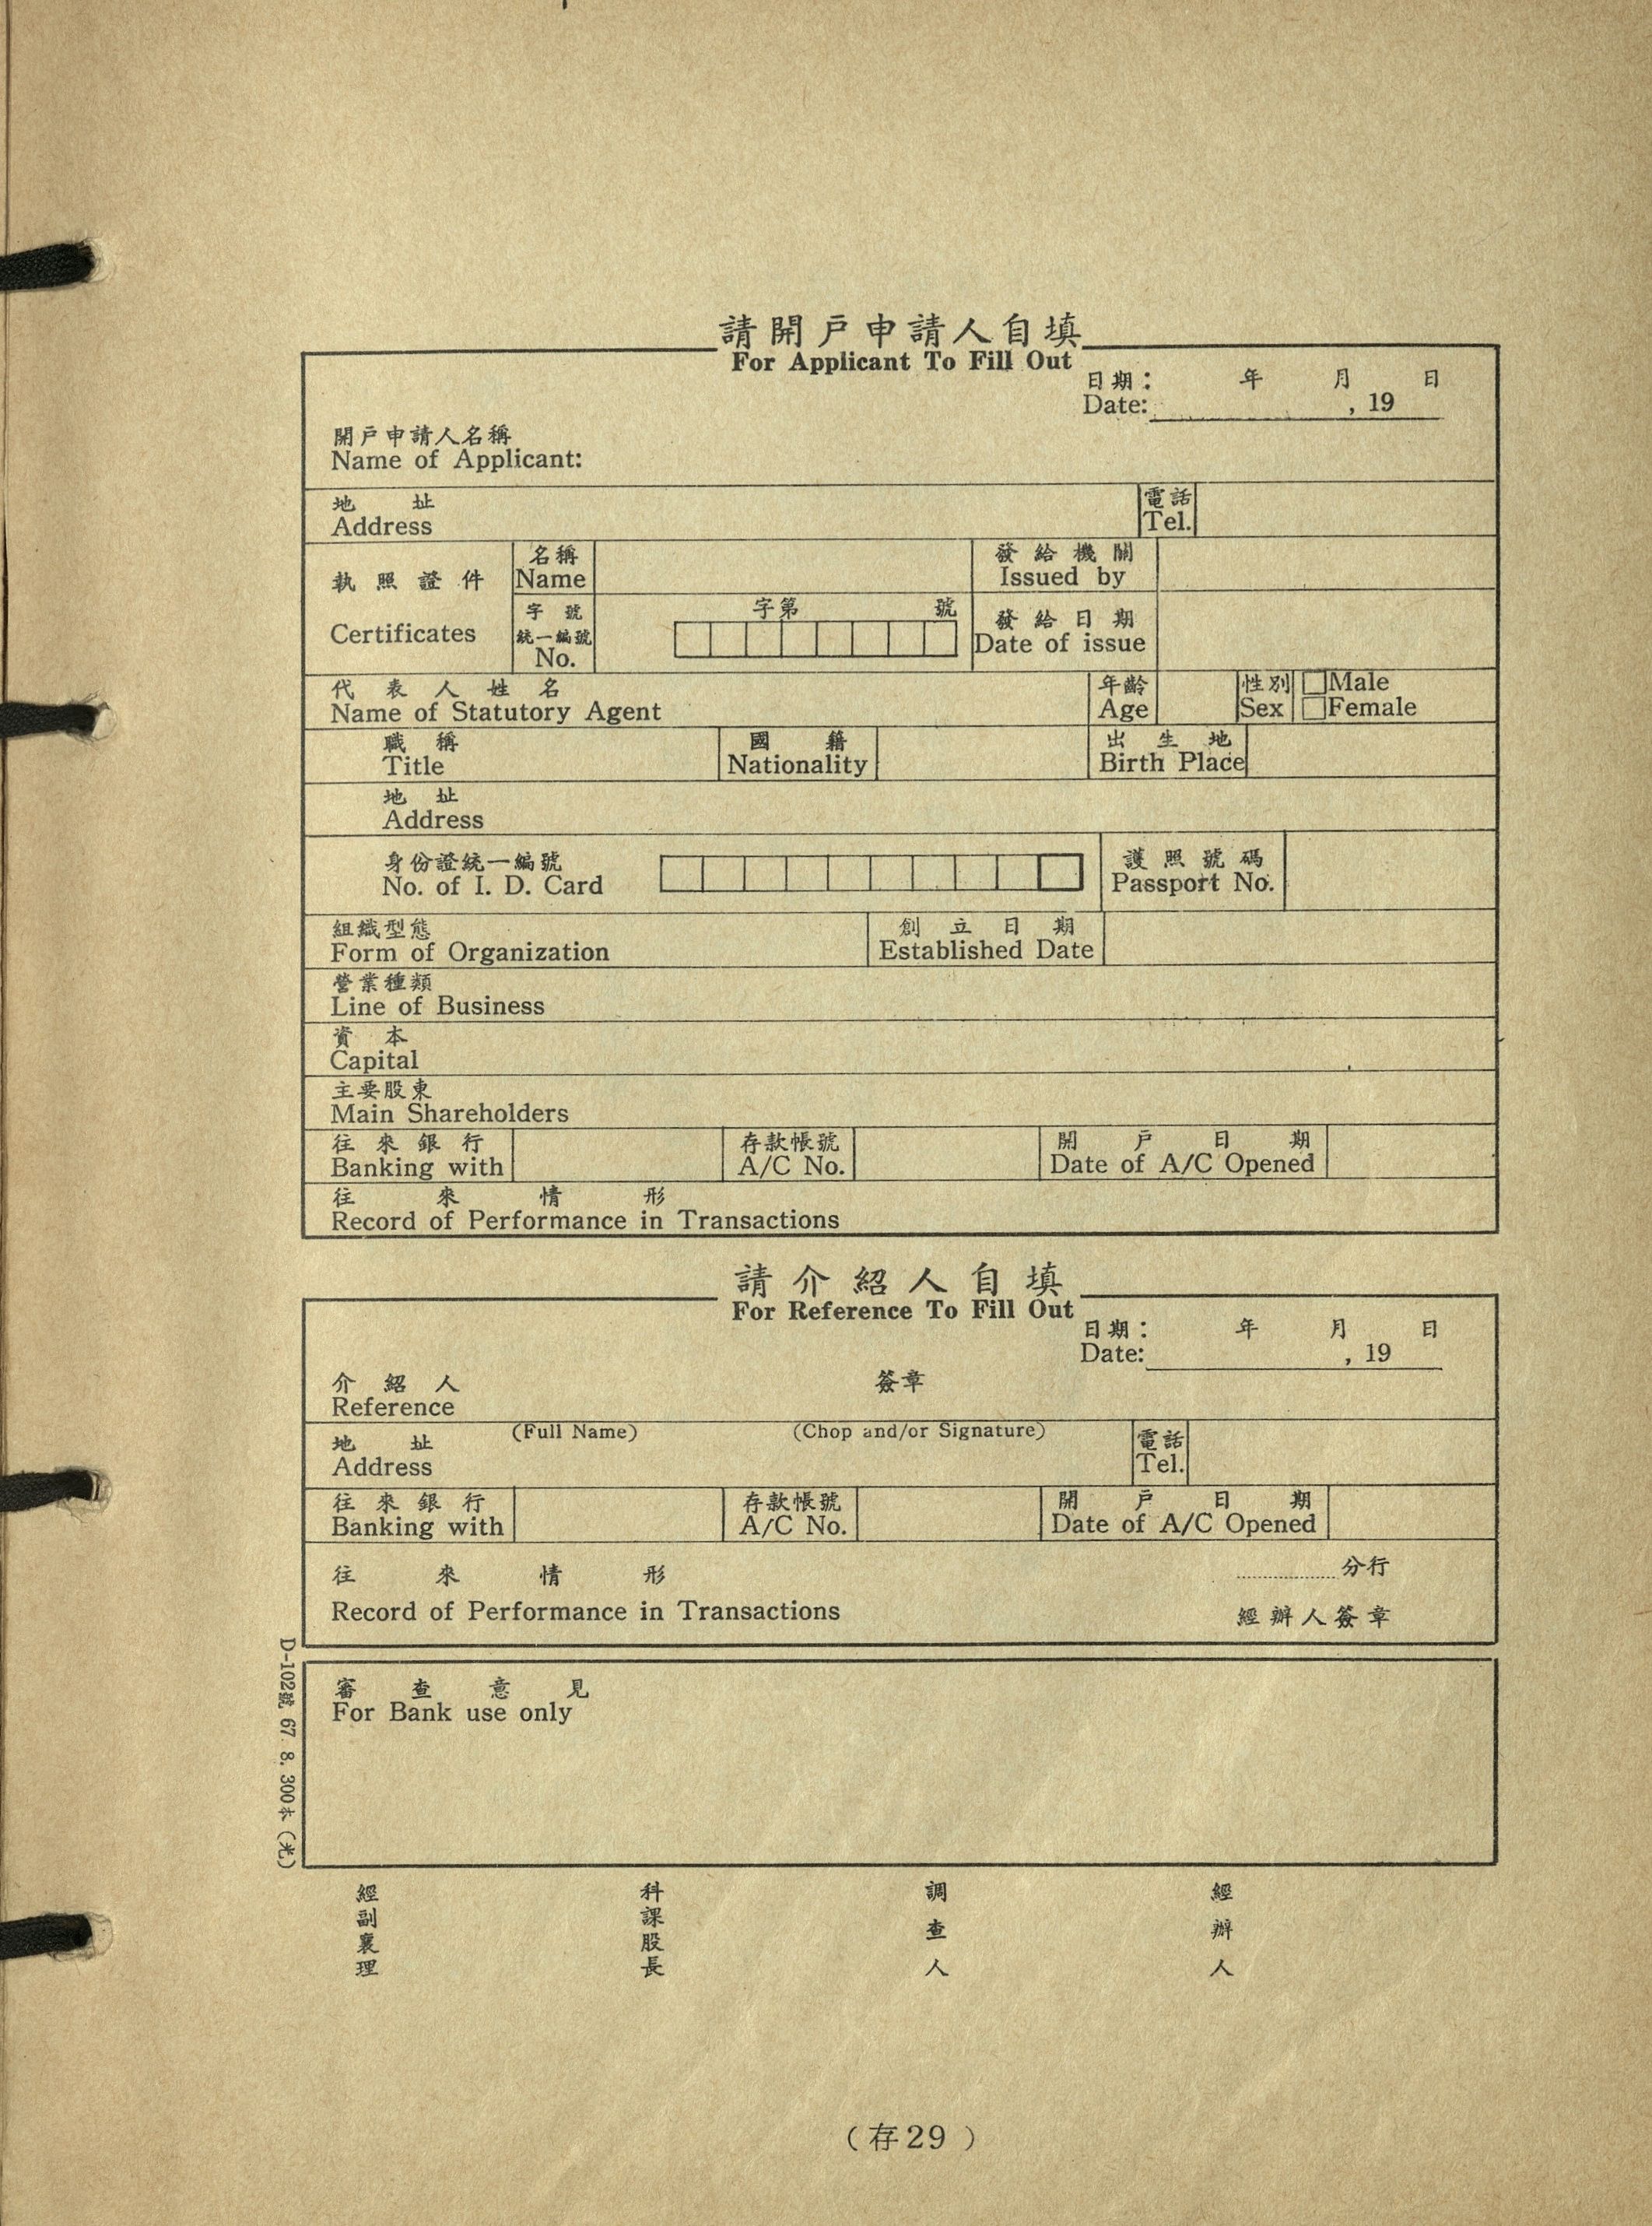 請開戶申請人自填
For Applicant To Fill Out
日期： 年 月 日
Date: , 19
開戶申請人名稱
Name of Applicant:
地 址 電話
Address Tel.
執照證件 名稱 發給機關
Name Issued by
字號 字第 號 發給日期
Certificates 統一編號 Date of issue
No.
代表人姓名 年齡 性別 □Male
Name of Statutory Agent Age Sex □Female
職稱 國籍 出生地
Title Nationality Birth Place
地址
Address
身份證統一編號 護照號碼
No. of I. D. Card Passport No.
組織型態 創立日期
Form of Organization Established Date
營業種類
Line of Business
資本
Capital
主要股東
Main Shareholders
往來銀行 存款帳號 開戶日期
Banking with A/C No. Date of A/C Opened
往來情形
Record of Performance in Transactions
請介紹人自填
For Reference To Fill Out
日期： 年 月 日
Date: , 19
介紹人 簽章
Reference
(Full Name) (Chop and/or Signature)
地 址 電話
Address Tel.
往來銀行 存款帳號 開戶日期
Banking with A/C No. Date of A/C Opened
往來情形 ............分行
Record of Performance in Transactions 經辦人簽章
審查意見
For Bank use only
D-102號 67. 8. 300本（光）
經副襄理 科課股長 調查人 經辦人
（存29）